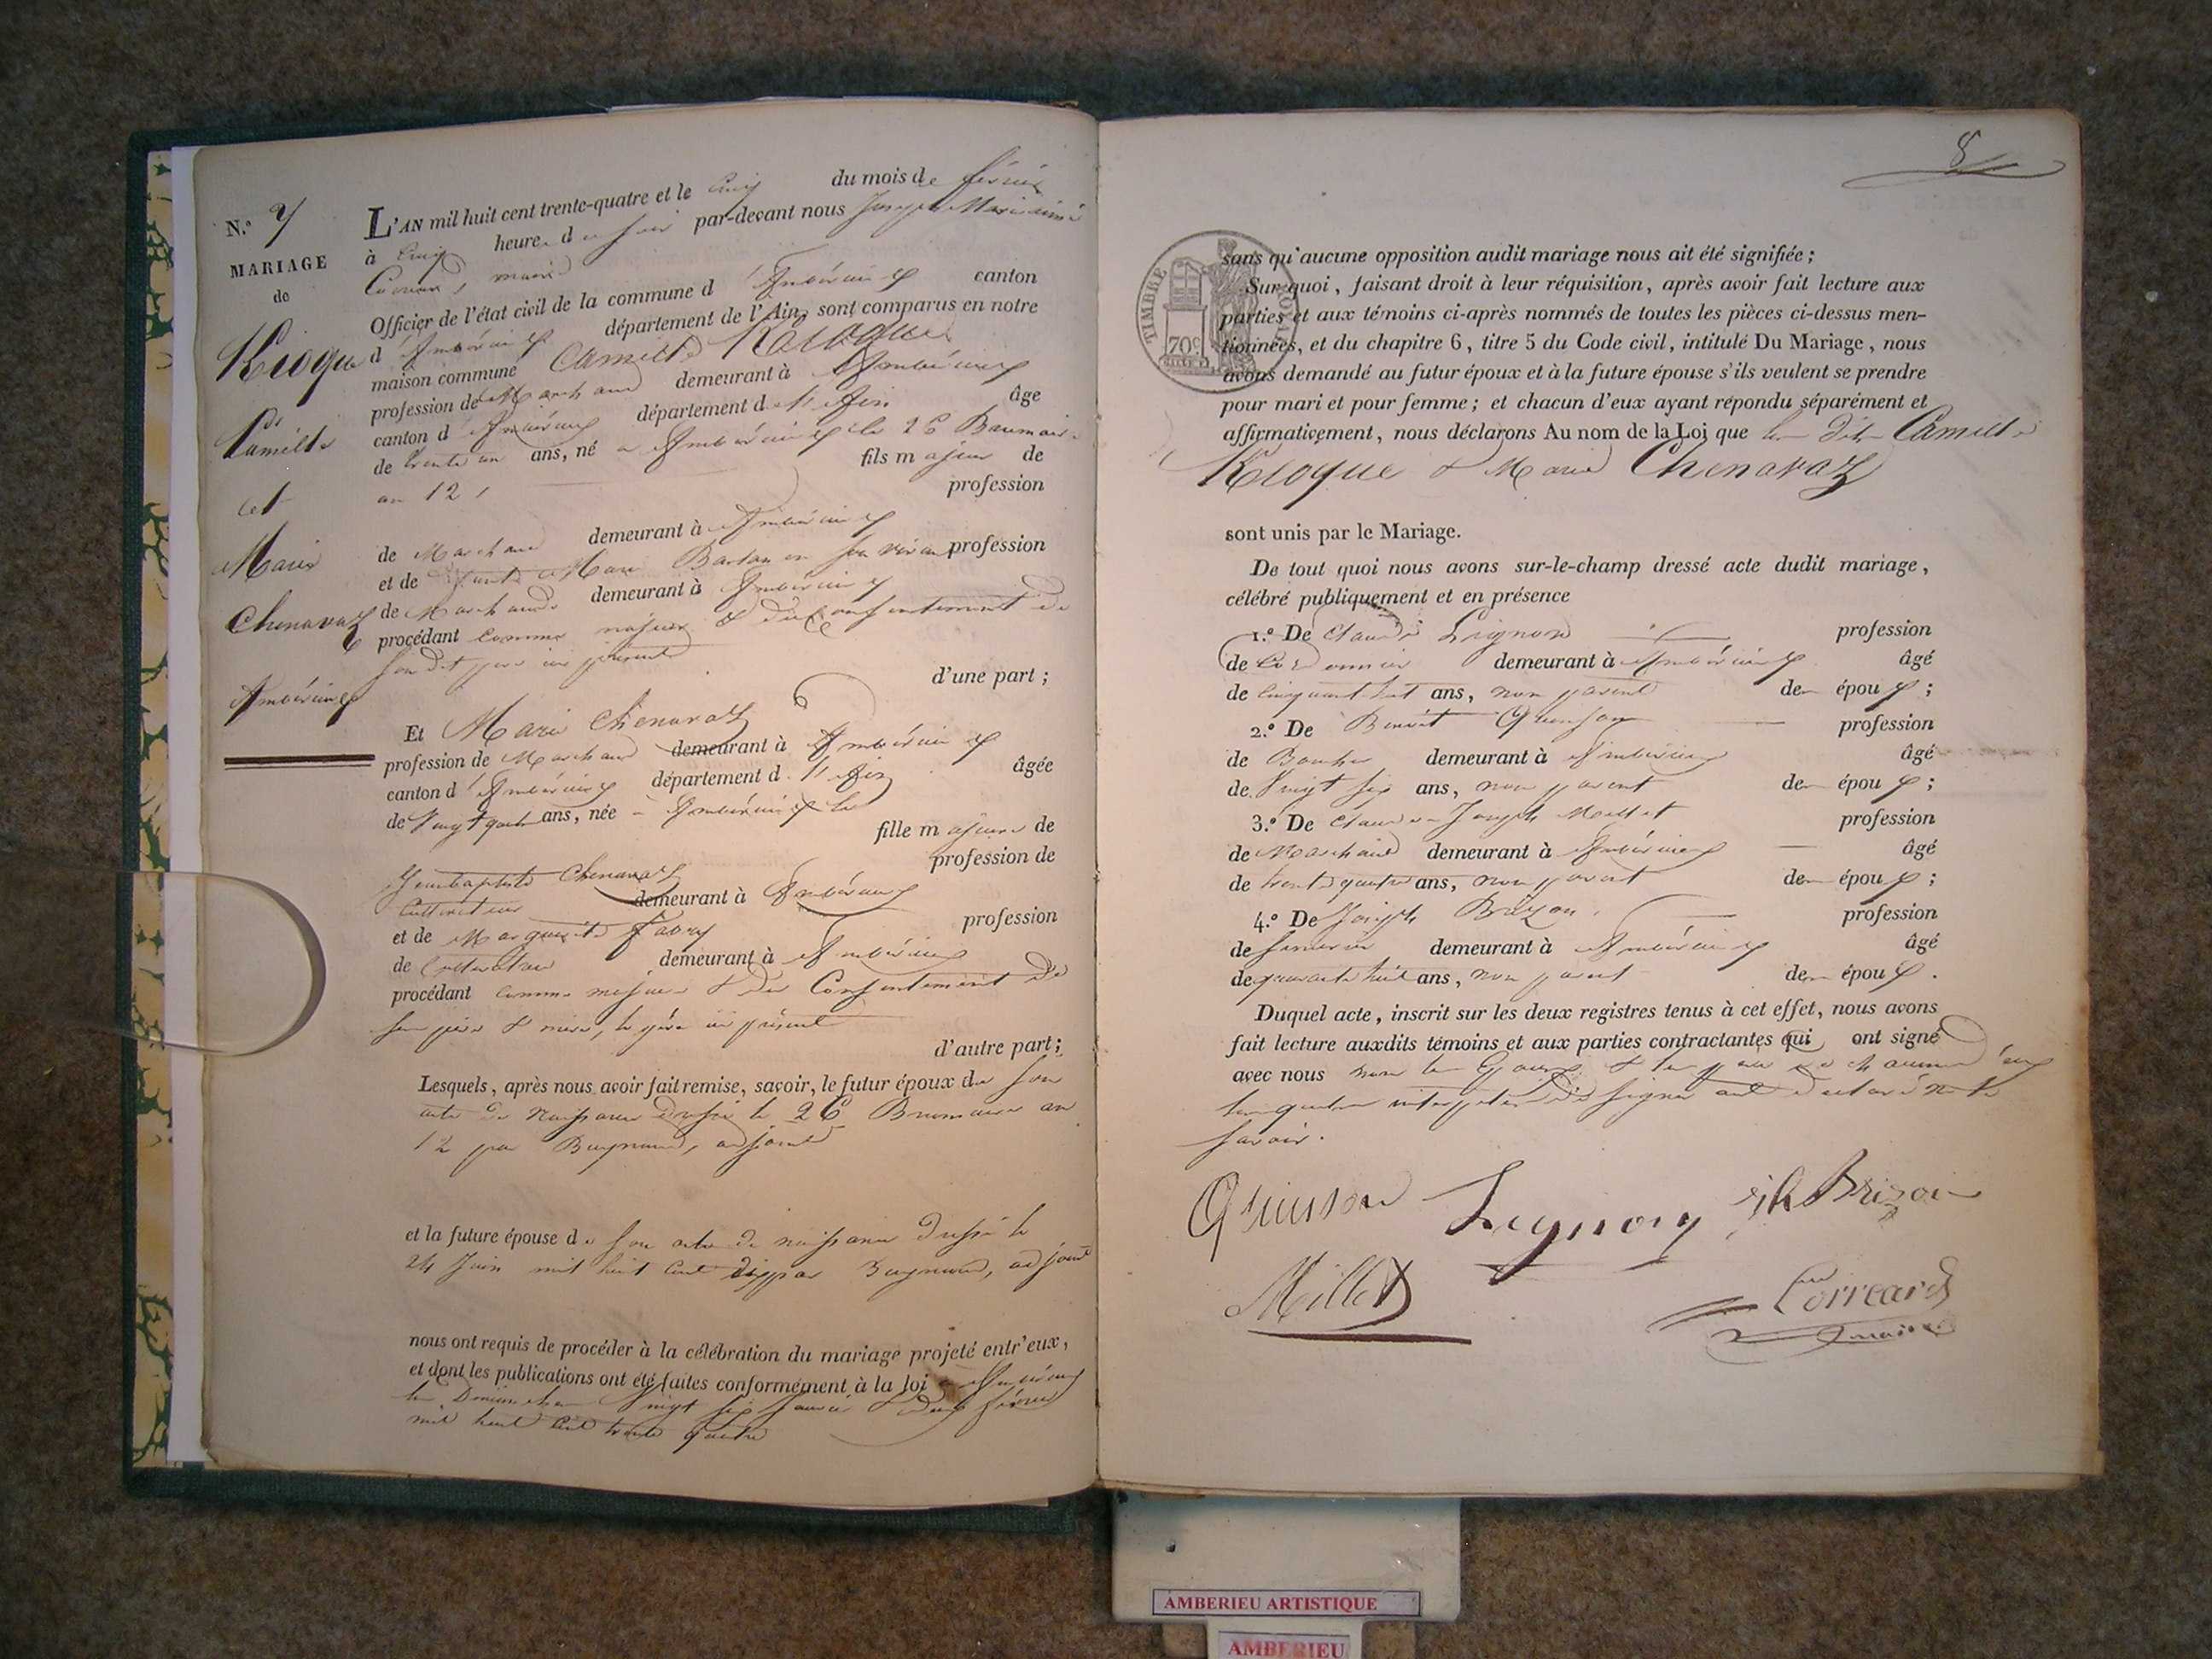 N.º 7
MARIAGE
de
Camille
et
Marie
Chenavaz
Ambérieux
L'AN mil huit cent trente-quatre et le cinq du mois de février
à cinq heures du soir par-devant nous Joseph Marie
maire
Officier de l'état civil de la commune d'Ambérieux canton
d'Ambérieux département de l'Ain, sont comparus en notre
maison commune Camille
profession de Marchand demeurant à Ambérieux
canton d'Ambérieux département de l'Ain âgé
de trente un ans, né à Ambérieux le 26 Brumaire
an 12, fils majeur de
profession
de Marchand demeurant à Ambérieux
et de défunte Marie en son vivant profession
de Marchande demeurant à Ambérieux
procédant comme majeur & du consentement de
son dit père ici présent
d'une part ;
Et Marie Chenavaz
profession de Marchande demeurant à Ambérieux
canton d'Ambérieux département de l'Ain âgée
de Vingt quatre ans, née à Ambérieux le
fille majeure de
Jean baptiste Chenavaz profession de
Cultivateur demeurant à Ambérieux
et de Marguerite Fabry profession
de Cultivatrice demeurant à Ambérieux
procédant comme majeure & du Consentement de
ses père & mère, le père ici présent
d'autre part ;
Lesquels, après nous avoir fait remise, savoir, le futur époux de son
acte de naissance dressé le 26 Brumaire an
12 par adjoint
et la future épouse de son acte de naissance dressé le
24 Juin mil huit cent dix par adjoint
nous ont requis de procéder à la célébration du mariage projeté entr'eux,
et dont les publications ont été faites conformément à la loi à Ambérieux
les Dimanches Vingt six Janvier & deux février
mil huit cent trente quatre
8
TIMBRE ROYAL
70c
sans qu'aucune opposition audit mariage nous ait été signifiée ;
Sur quoi, faisant droit à leur réquisition, après avoir fait lecture aux
parties et aux témoins ci-après nommés de toutes les pièces ci-dessus men-
tionnées, et du chapitre 6, titre 5 du Code civil, intitulé Du Mariage, nous
avons demandé au futur époux et à la future épouse s'ils veulent se prendre
pour mari et pour femme ; et chacun d'eux ayant répondu séparément et
affirmativement, nous déclarons Au nom de la Loi que les dits Camille
& Marie Chenavaz
sont unis par le Mariage.
De tout quoi nous avons sur-le-champ dressé acte dudit mariage,
célébré publiquement et en présence
1.º De Claude Lignon profession
de Cordonnier demeurant à Ambérieux âgé
de cinquante huit ans, non parent des époux ;
2.º De Benoit Quinson profession
de Boucher demeurant à Ambérieux âgé
de Vingt six ans, non parent des époux ;
3.º De Claude-Joseph Millet profession
de Marchand demeurant à Ambérieux âgé
de trente quatre ans, non parent des époux ;
4.º De Joseph Brizon profession
de demeurant à Ambérieux âgé
de quarante huit ans, non parent des époux.
Duquel acte, inscrit sur les deux registres tenus à cet effet, nous avons
fait lecture auxdits témoins et aux parties contractantes qui ont signé
avec nous non les Epoux & les pères de chacun d'eux
lesquels interpellés de signer ont déclaré ne le
savoir.
Quinson Lignon Brizon
Millet
Correard
maire
AMBERIEU ARTISTIQUE
AMBERIEU